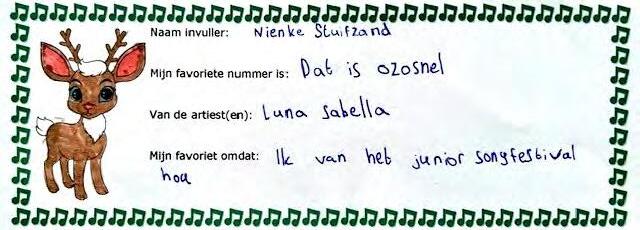 Naam invuller: Nienke Stuifzand
Mijn favoriete nummer is: Dat is ozosnel
Van de artiest(en): Luna Sabella
Mijn favoriet omdat: Ik van het junior songfestival
hou